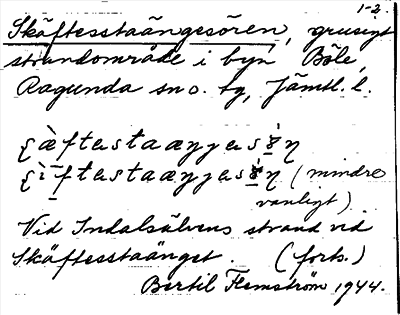 1-2.
Skäftesstaängesören, grusigt
strandområde i byn Böle,
Ragunda sn o. tg, Jämtl. l.
(mindre
vanligt)
Vid Indalsälvens strand vid
Skäftesstaänget. (forts.)
Bertil Flemström 1944.